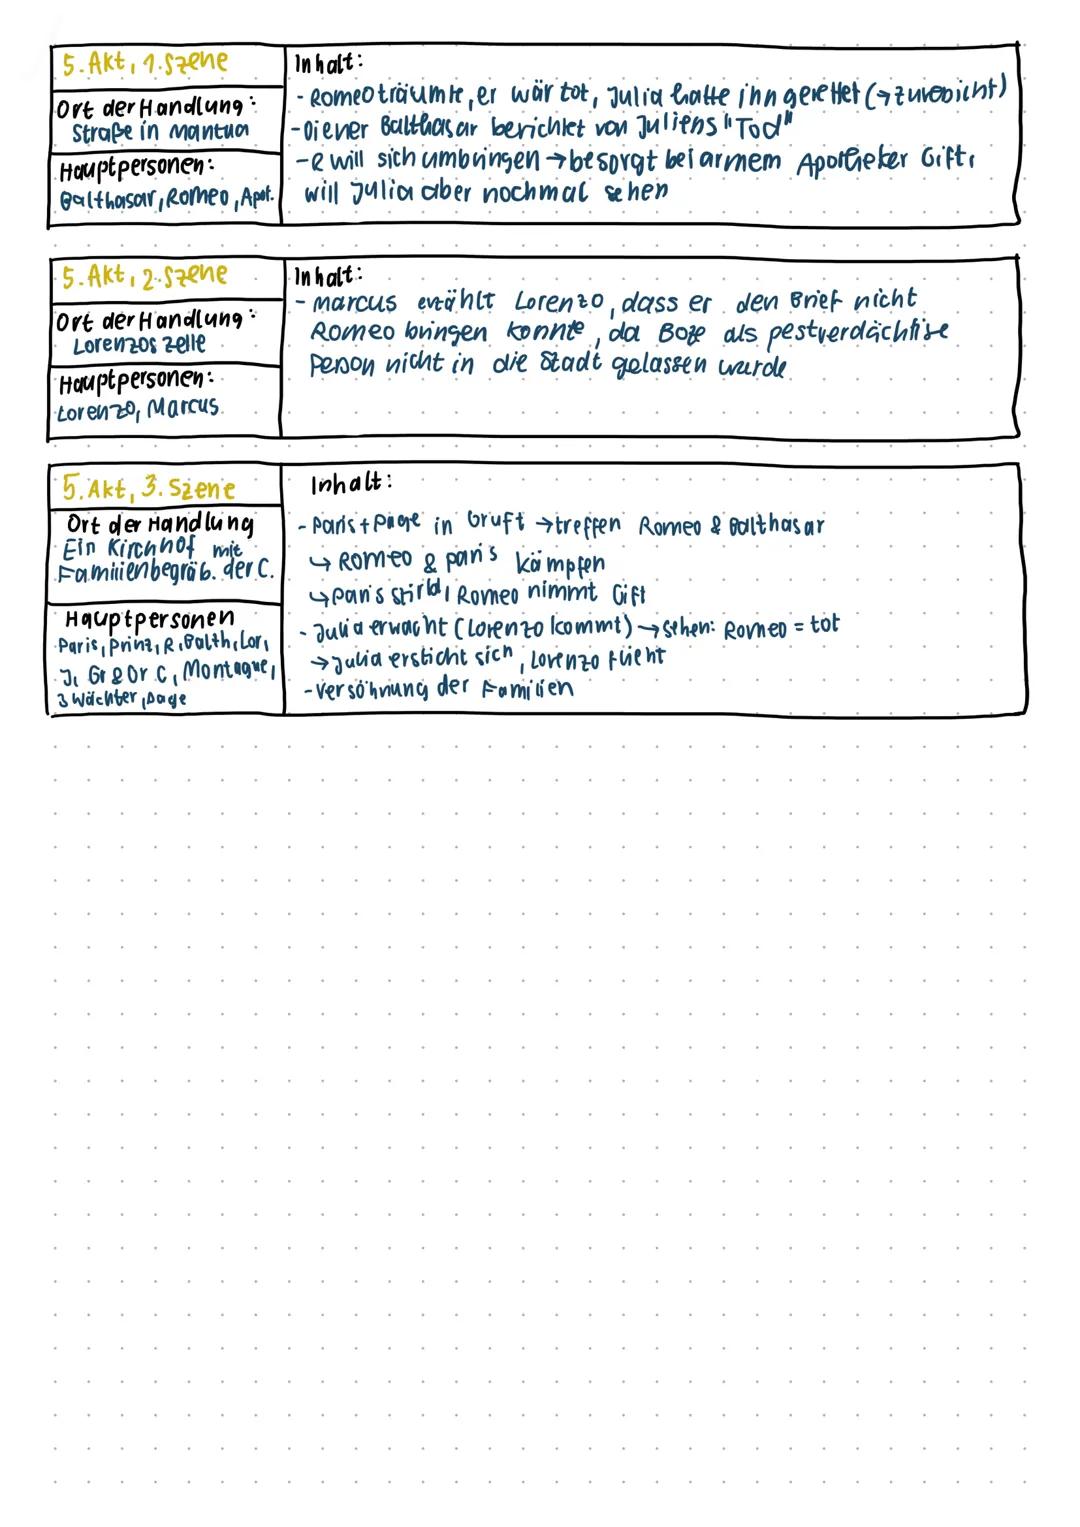 5. Akt, 1. Szene
Ort der Handlung:
Straße in Mantua
Hauptpersonen:
Balthasar, Romeo, Apot.
Inhalt:
- Romeo träumte, er wär tot, Julia hatte ihn gerettet (→ Zuversicht)
- Diener Balthasar berichtet von Juliens "Tod"
- R will sich umbringen → besorgt bei armem Apotheker Gift,
will Julia aber nochmal sehen
5. Akt, 2. Szene
Ort der Handlung:
Lorenzos Zelle
Hauptpersonen:
Lorenzo, Marcus
Inhalt:
- Marcus erzählt Lorenzo, dass er den Brief nicht
Romeo bringen konnte, da Bote als pestverdächtige
Person nicht in die Stadt gelassen wurde
5. Akt, 3. Szene
Ort der Handlung
Ein Kirchhof mit
Familienbegräb. der C.
Hauptpersonen
Paris, Prinz, R, Balth, Lor,
J, Gr & Gr C, Montague,
3 Wächter, Page
Inhalt:
- Paris + Page in Gruft → treffen Romeo & Balthasar
↳ Romeo & Paris kämpfen
↳ Paris stirbt, Romeo nimmt Gift
- Julia erwacht (Lorenzo kommt) → sehen: Romeo = tot
→ Julia ersticht sich, Lorenzo flieht
- Versöhnung der Familien